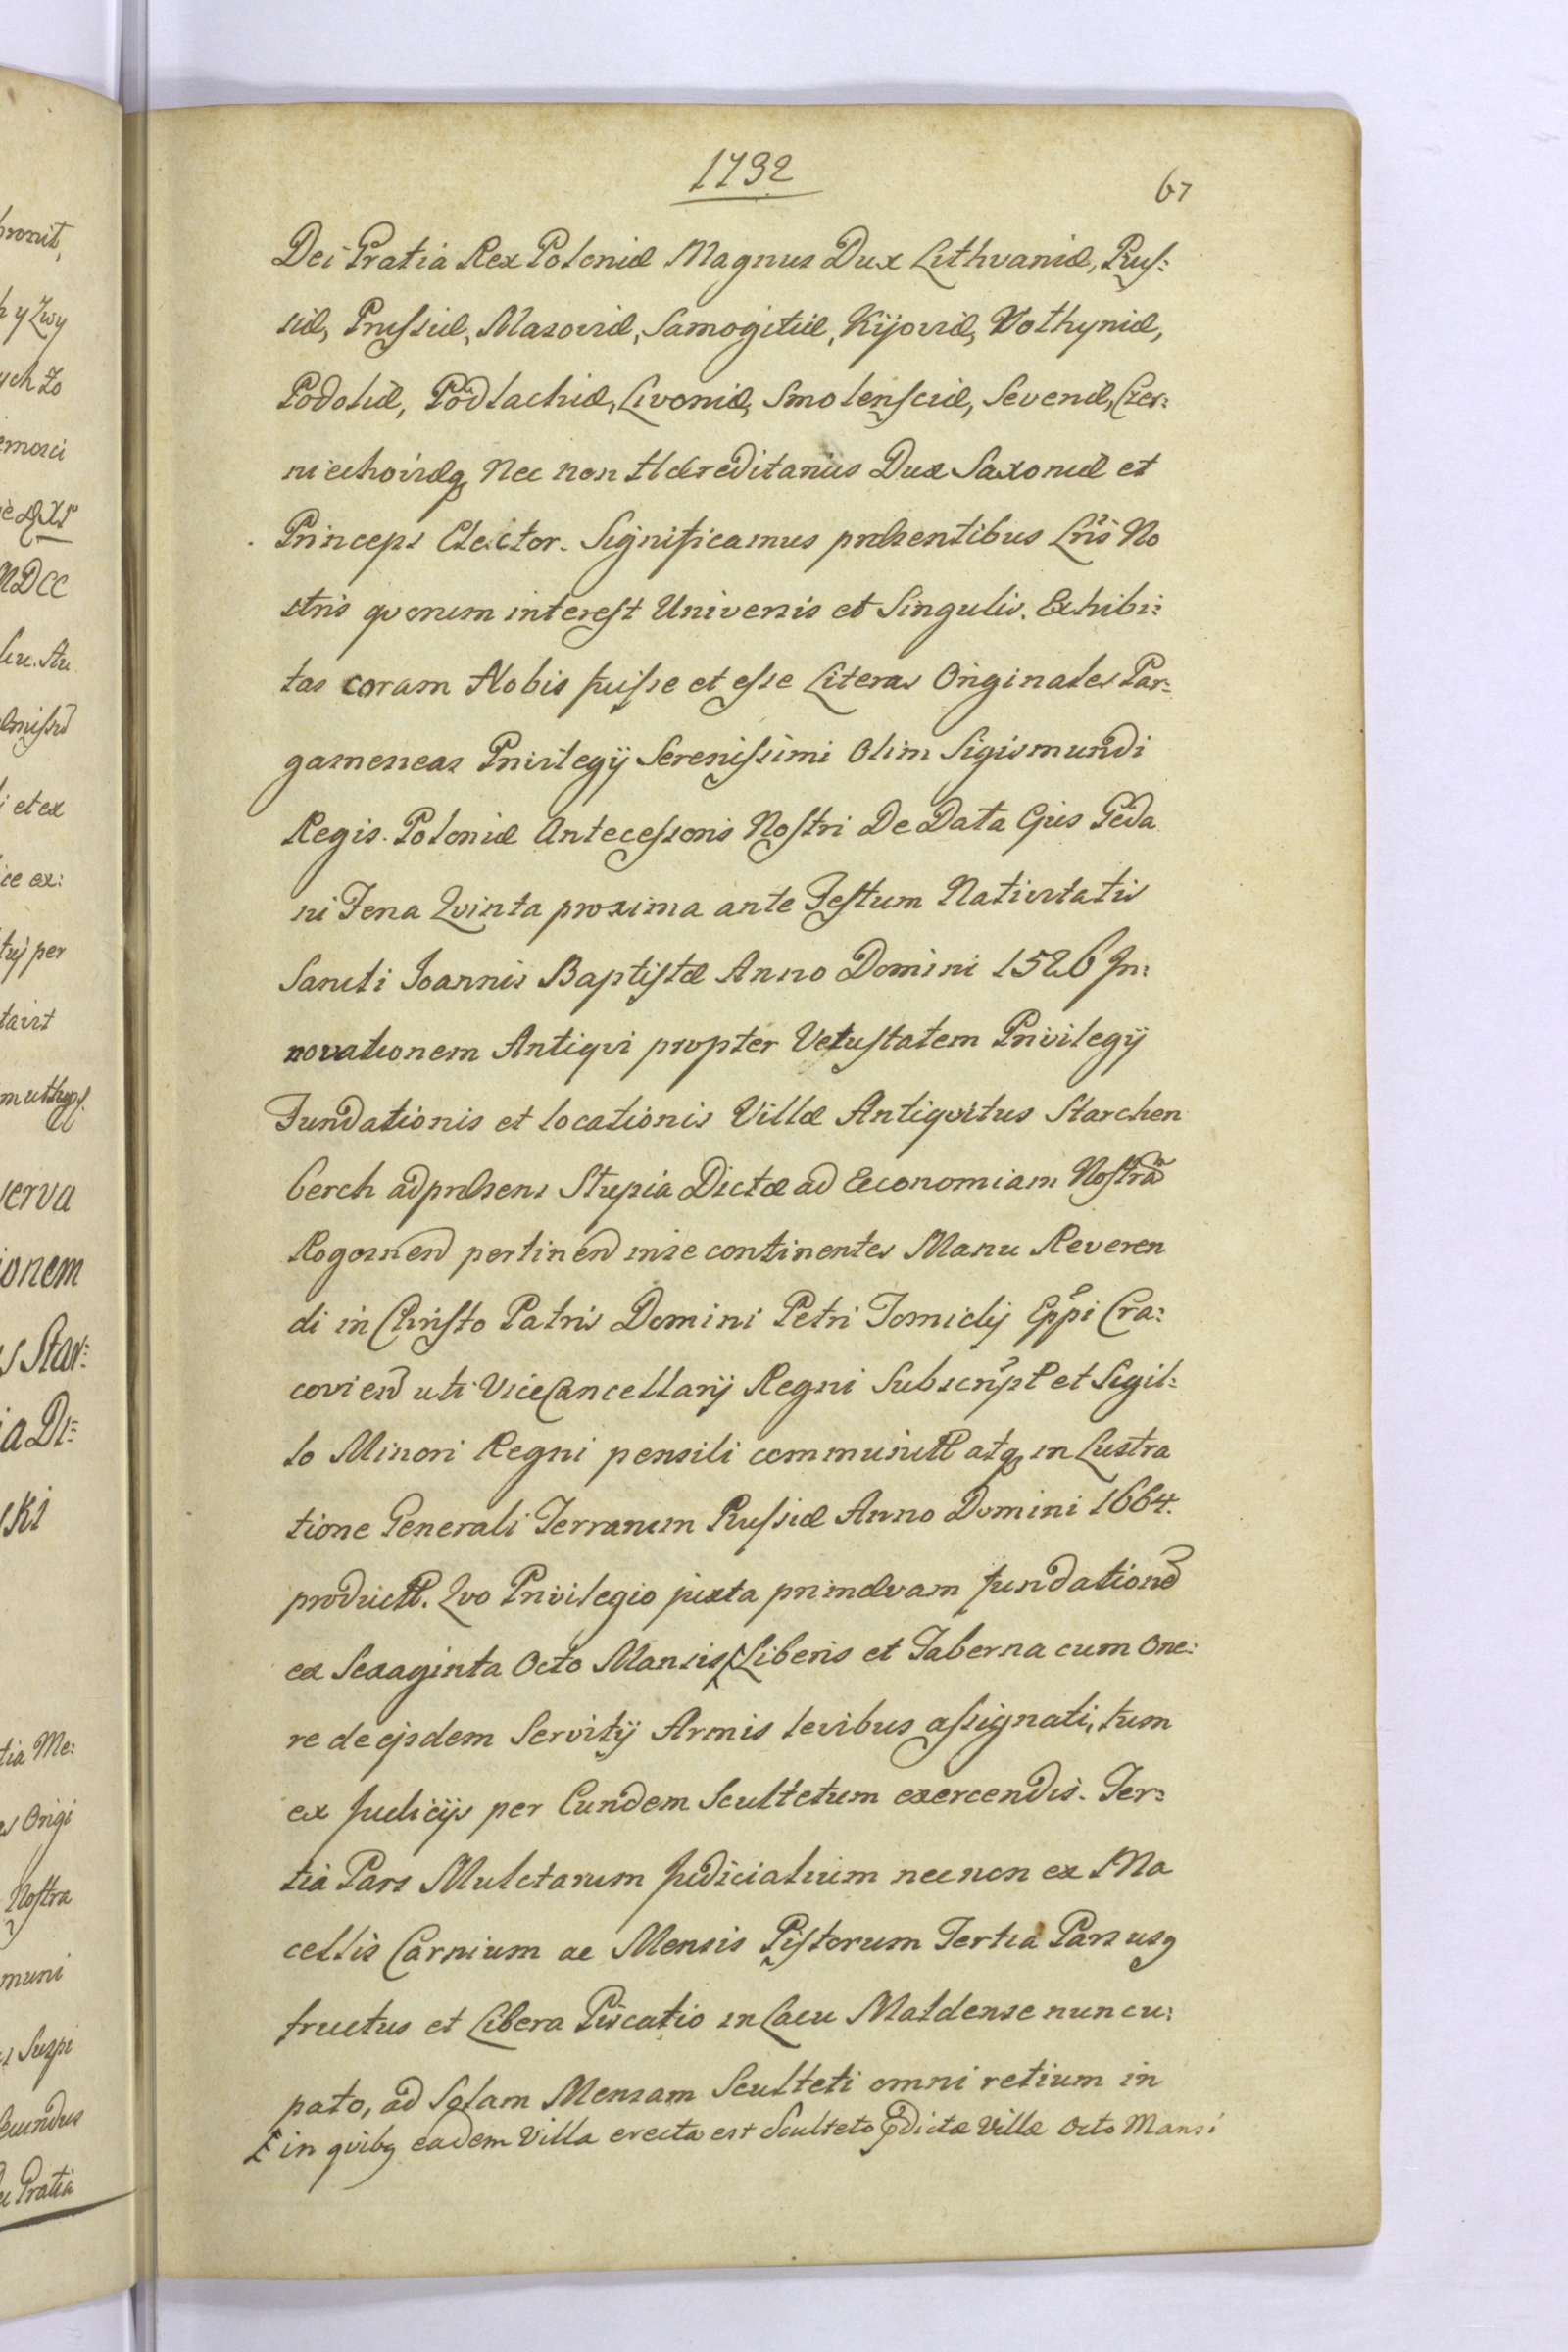 1732
67
Dei Gratia Rex Poloniæ Magnus Dux Lithvaniæ, Rus:
siæ, Prussiæ, Masoviæ, Samogitiæ, Kijoviæ, Volhyniæ,
Podoliæ, Podlachiæ, Livoniæ, Smolensciæ, Severiæ, Czer:
niechoviæq Nec non Hæreditarius Dux Saxoniæ et
Princeps Elector. Significamus præsentibus Lris No
stris qvorum interest Universis et Singulis. Exhibi:
tas coram Nobis fuisse et esse Literas Originales Par:
gameneas Privilegij Serenissimi Olim Sigismundi
Regis Poloniæ Antecessoris Nostri De Data Ejus Geda
ni Feria Qvinta proxima ante Festum Nativitatis
Sancti Joannis Baptistæ Anno Domini 1526 In:
novationem Antiqvi propter Vetustatem Privilegij
Fundationis et locationis Villæ Antiqvitus Starchen
berch ad præsens Stupia Dictæ ad Œconomiam Nostrã
Rogoznen pertinen in se continentes Manu Reveren
di in Christo Patris Domini Petri Tomicij Eppi Cra:
covien uti ViceCancellarij Regni Subscript et Sigil:
lo Minori Regni pensili communitt atq in Lustra
tione Generali Terrarum Russiæ Anno Domini 1664.
productt. Qvo Privilegio juxta primævam fundatione
ex Sexaginta Octo Mansis Liberis et Taberna cum One:
re de ejsdem Servitij Armis levibus assignati, tum
ex Judicijs per Eundem Scultetum exercendis. Ter:
tia Pars Mulctarum Judicialium nec non ex Ma
cellis Carnium ac Mensis Pistorum Tertia Pars usq
fructus et Libera Piscatio in Lacu Maldense nuncu:
pato, ad Solam Mensam Sculteti omni retium in
in qvibq eadem Villa erecta est Sculteto pdictæ Villæ Octo Mansi